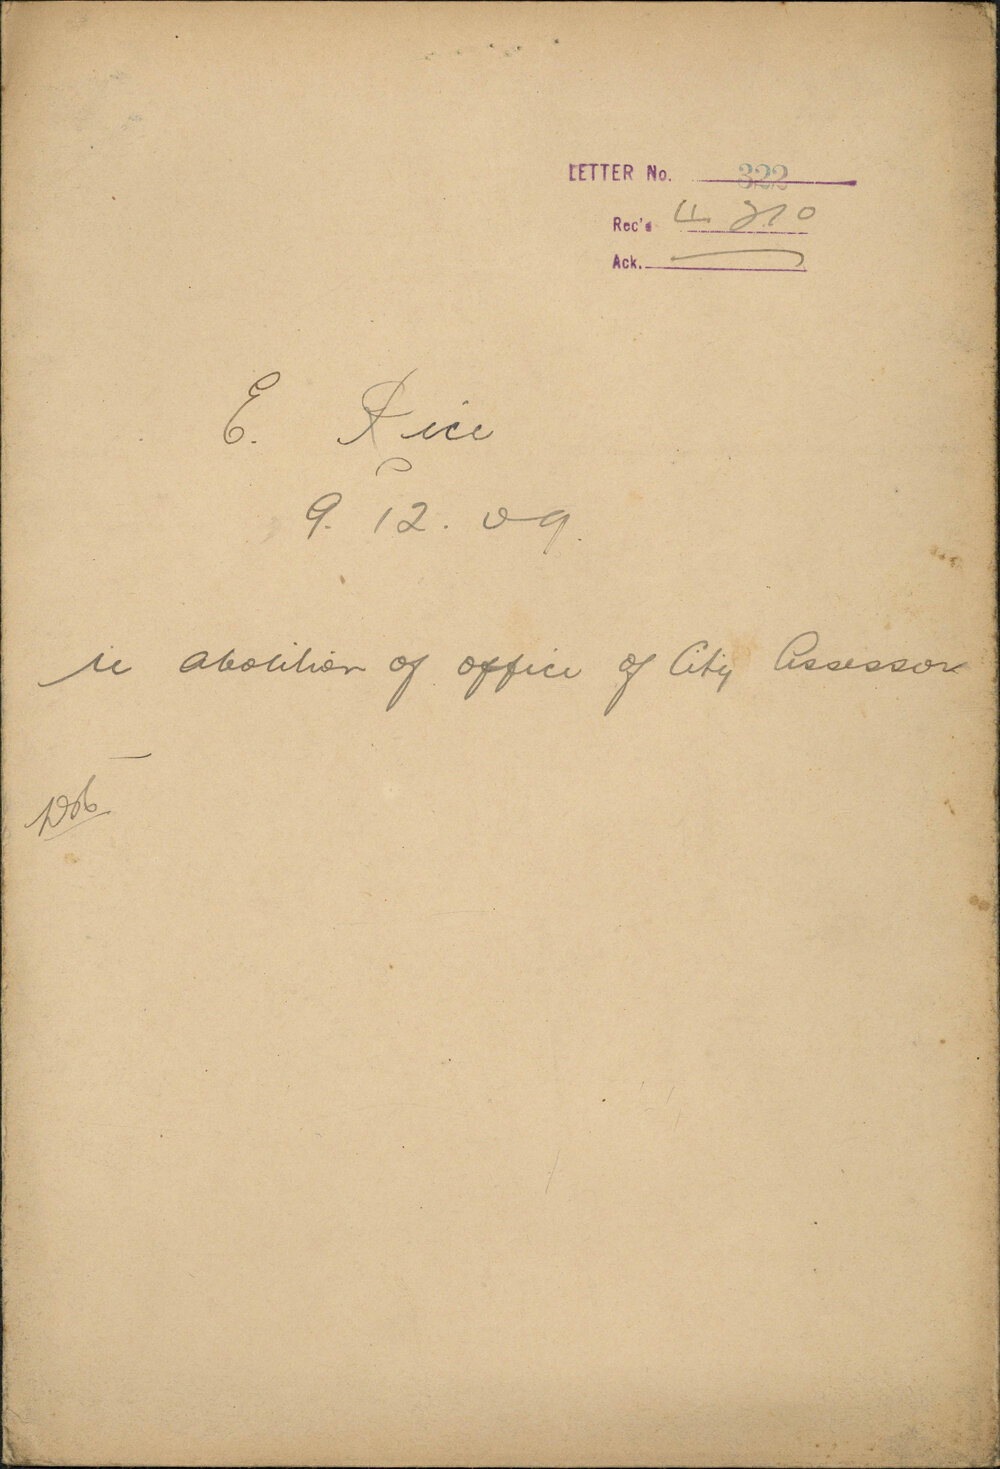 LETTER No. 322
Rec'd 4 2 10
Ack.
E. Rice
9. 12. 09.
re abolition of office of City Assessor